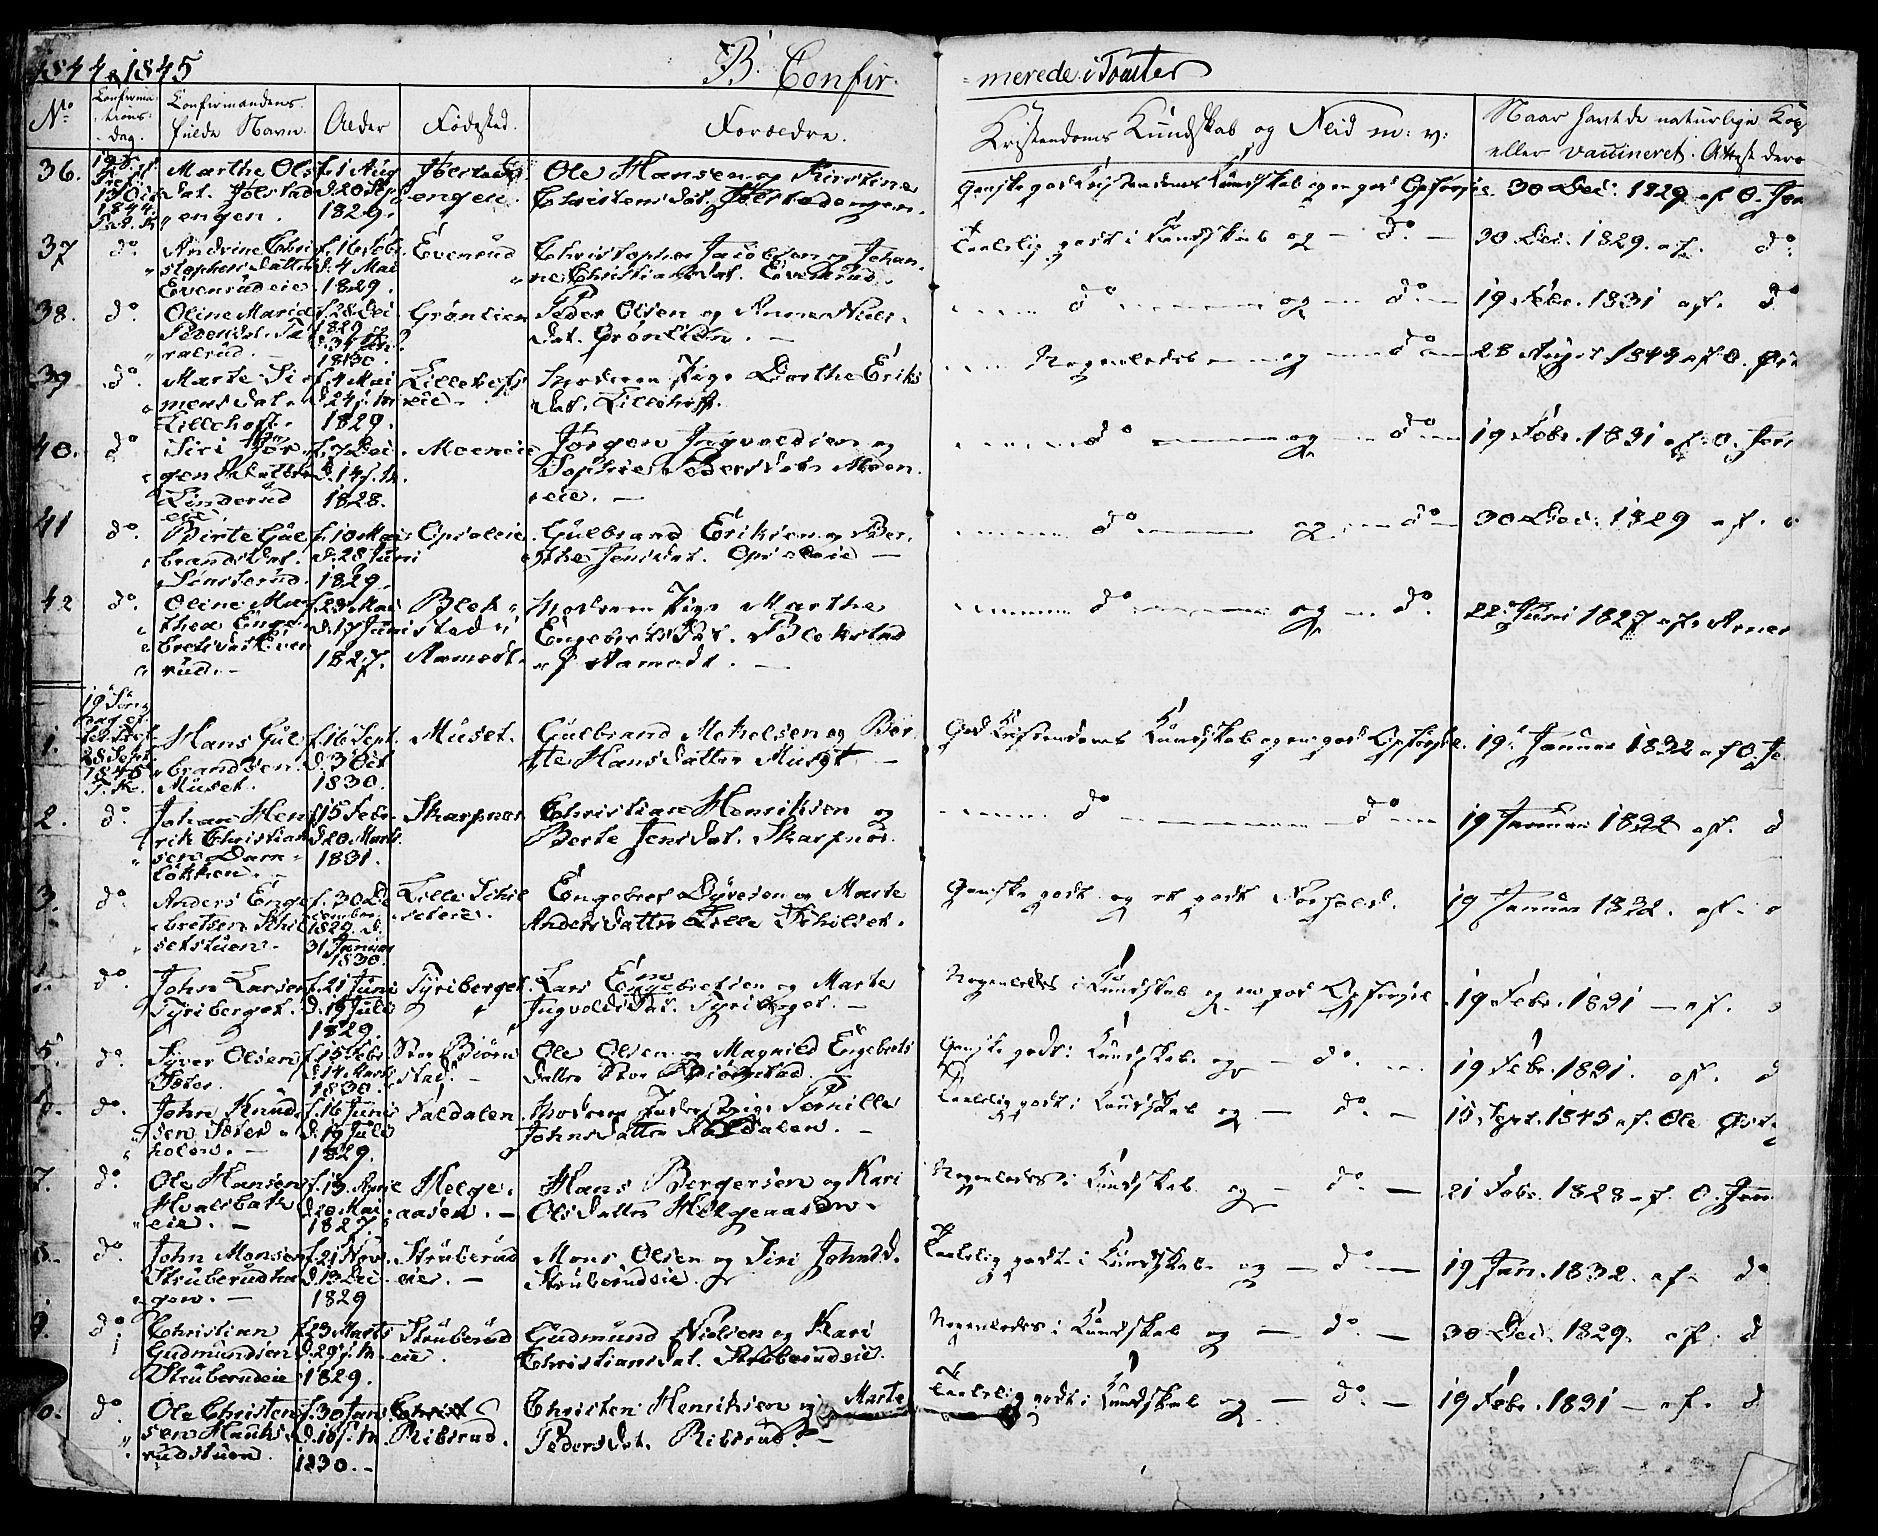 1844 & 1845
B. Confir- merede i Tomter
No
Confirma-
tions-
dag.
Confirmandens
fulde Navn.
Alder
Fødested.
Forældre.
Kristendoms Kundskab og Flid m: v:
Naar havt de naturlige Kop
eller vaccineret. Attest ders
36.
1844
Marthe Ols
Dat. Jølstad
engen.
f. 1 Aug
1829.
Jølstads
engen.
Ole Hansen og Kirstine
Christens Dat. Jølstadengen.
Ganske god Kristendoms Kundskab og en god Opførsel.
30 Dec. 1829 af O. Jen
37
do.
Andrine Chri
stophers Datter
Evenrudeie.
f. 16 Feb.
d. 4 Mai
1829.
Evenrud
Christopher Jacobsen og Johan-
ne Christians Dat. Evenrud.
Taalelig godt i Kundskab og — do. —
30 Dec. 1829. af. do.
38.
do.
Oline Marie
Peders Dat.
f. 28 Dec
1829
1830.
Grønlien
Peder Olsen og Anne Niels
Dat. Grønlien. —
do og — do. —
19 Febr. 1831 af. do
39
do.
Marte Si
mens Dat.
Lillehoft.
f. 4 Mai
d. 24 s. M.
1829.
Lillehoft
eie.
Moderen Pige Dorthe Eriks
Dat. Lillehoft.
Nogenledes og do
28 August 1844 af O.
40.
do
Siri Jør
gens Datter
Linderud
eie.
f. 7 Dec.
d. 14 s. M.
1828.
Moeneie
Jørgen Ingvoldsen og
Sophie Peders Dat. Moen
eie. —
do og do
19 Febr. 1831 af O. Jen
41
do.
Birte Gul
brands Dat.
Sønsterud.
f. 10 Mai
d. 28 Juni
1829.
Opsaleie
Gulbrand Eriksen og Ber-
the Jens Dat. Opsaleie —
do og do
30 Dec. 1829 af.
42
do.
Oline Mar
thea Enge
brets Dat. Even
rud. —
f. 23 Mai
d. 17 Juni
1827.
Blek-
stad i
Aamodt.
Moderen Pige Marthe
Engebrets Dat. Blekstad
i Aamodt. —
do og — do.
22 Juni 1827 af. Arnes
19 Søn
dag ef.
28 Sept.
1845
1.
Hans Gul
brandsen
Muset.
f. 16 Sept.
d. 3 Oct
1830.
Muset.
Gulbrand Mekelsen og Ber
te Hans Datter Muset —
God Kristendoms Kundskab og en god Opførsel.
19 Januar 1832 af O. Je
2.
do.
Johan Hen
rik Christian
sen Dam-
løkken.
f. 15 Febr.
d. 20 Marts
1831.
Skarpnes
Christian Henriksen og
Berte Jens Dat. Skarpnes.
do do
19 Januar 1832 af. d
3.
do.
Anders Enge
bretsen Schil
setstuen.
f. 30 De
cember
1829. d.
31 Januar
1830.
Lille Schil
seteie.
Engebret Dyresen og Marte
Anders Datter Lille Schilset.
Ganske godt og et godt Forhold.
19 Januar 1832. af.
do.
John Larsen
Tyriberget.
f. 21 Juni
d. 19 Juli
1829.
Tyriberget
Lars Engebretsen og Marte
Ingvolds Dat. Tyriberget. —
Nogenledes i Kundskab og en god Opførsel
19 Febr. 1831 — af.
5.
do.
Syver Olsen
Sæter.
f. 15 Febr.
d. 14 Marts
1830.
Stor Biørn
stad. —
Ole Olsen og Magnild Engebrets
Datter Stor Biørnstad.
Ganske godt i Kundskab og — do.
19 Febr. 1831. af. d
6.
do.
John Knud
sen Sæter
holen. —
f. 16 Juni
d. 19 Juli
1829.
Faldalen
Moderen Pige Pernille
Johns Datter Faldalen. —
Taalelig godt i Kundskab og — do. —
15 Sept. 1845 af. Ole
7.
do.
Ole Hansen
Hvalsbakk
eie. —
f. 13. April
d. 20 Mai
1827.
Helge-
aasen. —
Hans Bergersen og Kari
Ols Datter Helgeaasen.
Nogenledes i Kundskab og — do. —
21 Febr. 1828 af. O. Jen
8.
do.
John Monsen
Struberudha
gen. —
f. 21 Nov.
d. 13 Dec.
1829
Struberud
eie. —
Mons Olsen og Siri Johns D.
Struberudeie.
Taalelig godt i Kundskab og — do —
19 Jan. 1832. af. do
9.
do
Christian
Gudmundsen
Struberudeie
f. 23 Marts
d. 29 s. M.
1829.
Struberud
eie.
Gudmund Nielsen og Kari
Christians Dat. Struberudeie.
Nogenledes i Kundskab og — do. —
30 Dec. 1829. af. d
do.
Ole Christen
sen Hauks
rudstuen.
f. 30 Jan.
1830. —
Ribsrud.
Christen Henriksen og Marte
Peders Dat. Ribsrud. —
Taalelig godt i Kundskab og — do. —
19 Febr. 1831 — af. d